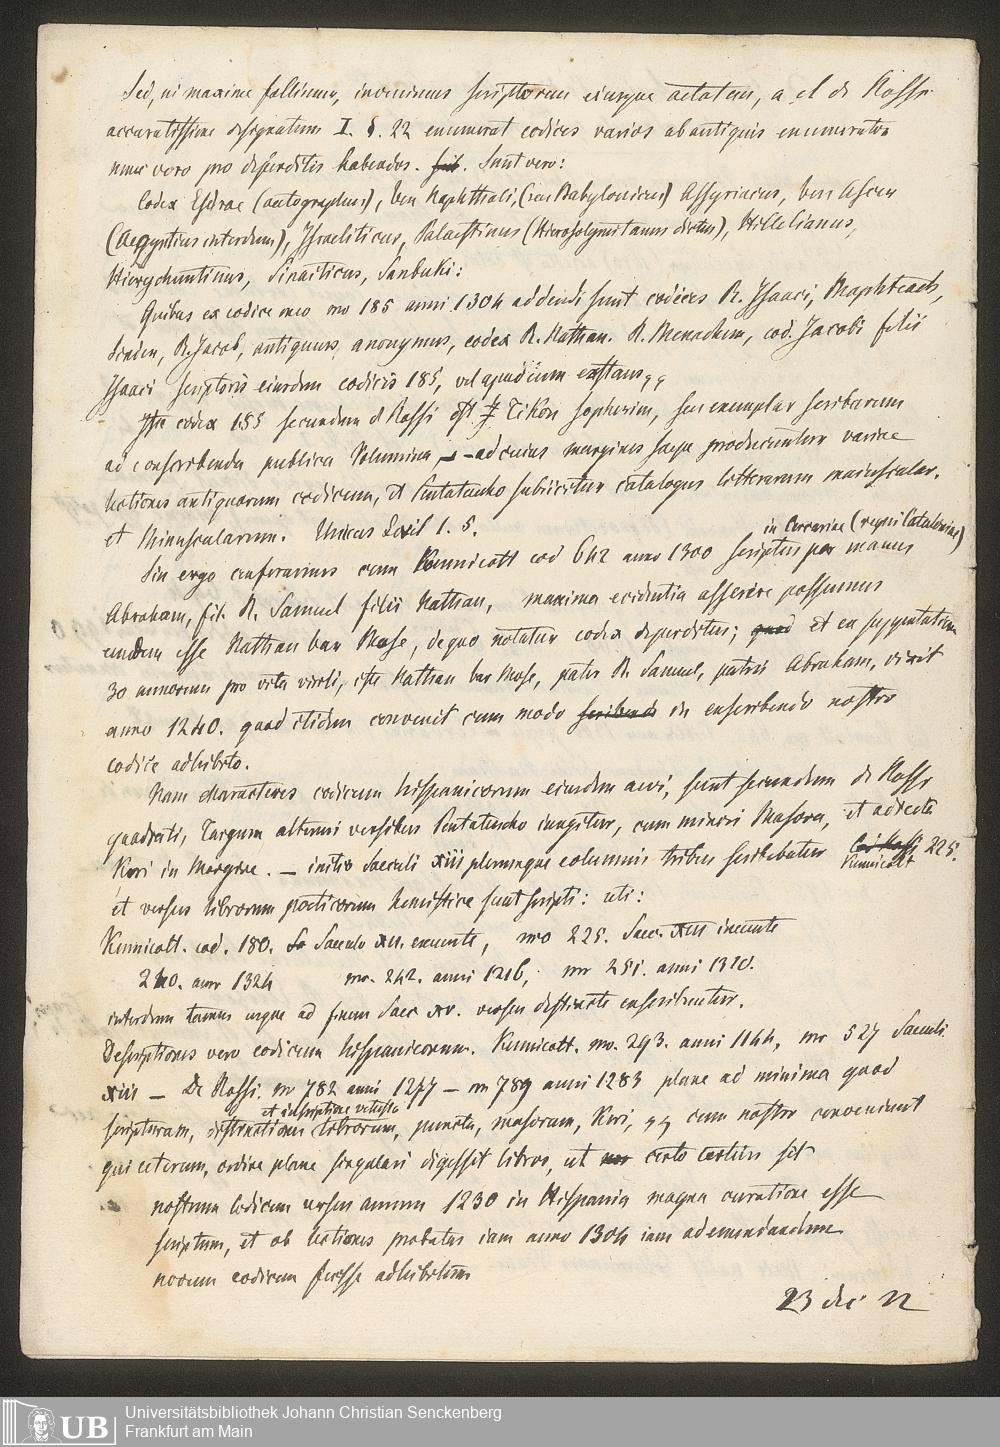 Sed, ni maxime fallimur, invenimus scriptorem eiusque aetatem, a cl de Rossi
accuratissime designatum I. §. 22 enumerat codices varios ab antiquis enumeratos
nunc vero pro deperditis habendos. Sunt vero:
Codex Esdrae (autographus), ben Naphthali, (seu Babylonicus) Assyriacus, ben Ascer
(Aegyptius interdum), Israeliticus, Palaestinus (Hierosolymitanus dictus), Hillelianus,
Hierychuntinus, Sinaiticus, Sanbuki:
Quibus ex codice meo no 185 anni 1304 addendi sunt codices R. Isaaci, Maphteach,
R. Jacob, antiquus, anonymus, codex R. Nathan. R. Menachem, cod. Jacobi filii
Isaaci scriptoris eiusdem codicis 185, vel apud eum exstans
Iste codex 185 secundum d Rossi est Tikon sopherim, seu exemplar scribarum
ad conscribenda publica Volumina, - ad cuius margines saepe producuntur variae
lectiones antiquorum codicum, et Pentateucho subiicitur catalogus litterarum maiuscular.
et Minuscularum. Unicus 1. 5.
in Cervariae (regni Cataloniae)
Sin ergo conferamus cum Kennicott cod 642 anno 1300 scriptus per manus
Abraham, fil. R. Samuel filii Nathan, maxima evidentia asserere possumus
eundem esse Nathan bar Mose, de quo notatur codex deperditus; quod et ea supputatione
30 annorum pro vita virili, iste Nathan bar Mose, pater R. Samuel, patris Abraham, vixit
anno 1240. quod itidem convenit cum modo scribendi in conscribendo nostro
codice adhibito.
Nam characteres codicum hispanicorum eiusdem aevi, sunt secundum de Rossi
quadrati, Targum alterni versibus Pentateucho iungitur, cum minori Masora, et adiecta
Keri in Margine. - initio Saeculi XIII plerumque columnis tribus scribebatur Cod Rossi 225.
Kennicott
et versus librorum poeticorum hemistice sunt scripti: uti:
Kennicott. cod. 180. Saeculo XII. exeunte, no 225. Saec. XIII ineunte
210. anno 1324 no. 242. anni 1216, no 251. anni 1310.
interdum tamen usque ad finem Saec XV. versu distincte conscribentur.
Descriptiones vero codicum hispanicorum. Kennicott. no. 293. anni 1144, no 527 Saeculi
XIII - De Rossi. no 782 anni 1277 - no 789 anni 1283 plane ad minima quod
et inscriptione vetusta
scripturam, distinctionis librorum, puncta, masoram, Keri, cum nostro conveniunt
qui ceterum, ordine plane singulari digessit libros, ut certo certius sit
nostrum Codicem versus annum 1230 in Hispania magna curatione esse
scriptum, et ob lectiones probatas iam anno 1304 iam ad emendandum
novum codicem fuisse adhibitum
23 dec 22
Universitätsbibliothek Johann Christian Senckenberg
Frankfurt am Main
UB